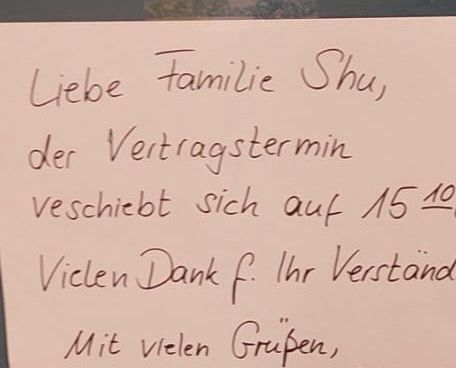 Liebe Familie Shu,
der Vertragstermin
veschiebt sich auf 15 10
Vielen Dank f. Ihr Verständ
Mit vielen Grüßen,